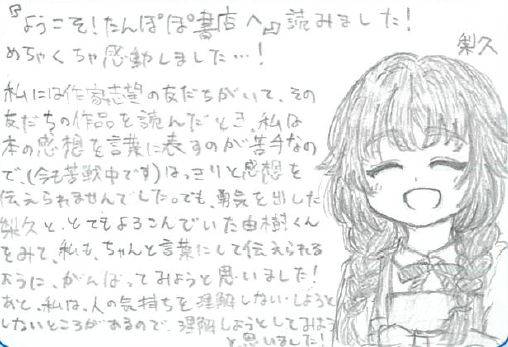 『ようこそ！たんぽぽ書店へ』読みました！
めちゃくちゃ感動しました…！
梨久
私には作家志望の友だちがいて、その
友だちの作品を読んだとき、私は
本の感想を言葉に表すのが苦手なの
で、(今も苦戦中です)はっきりと感想を
伝えられませんでした。でも、勇気を出した
梨久と、とてもよろこんでいた由樹くん
をみて、私も、ちゃんと言葉にして伝えられる
ように、がんばってみようと思いました！
あと、私は、人の気持ちを理解しない・しようと
しないところがあるので、理解しようとしてみよう
と思いました！